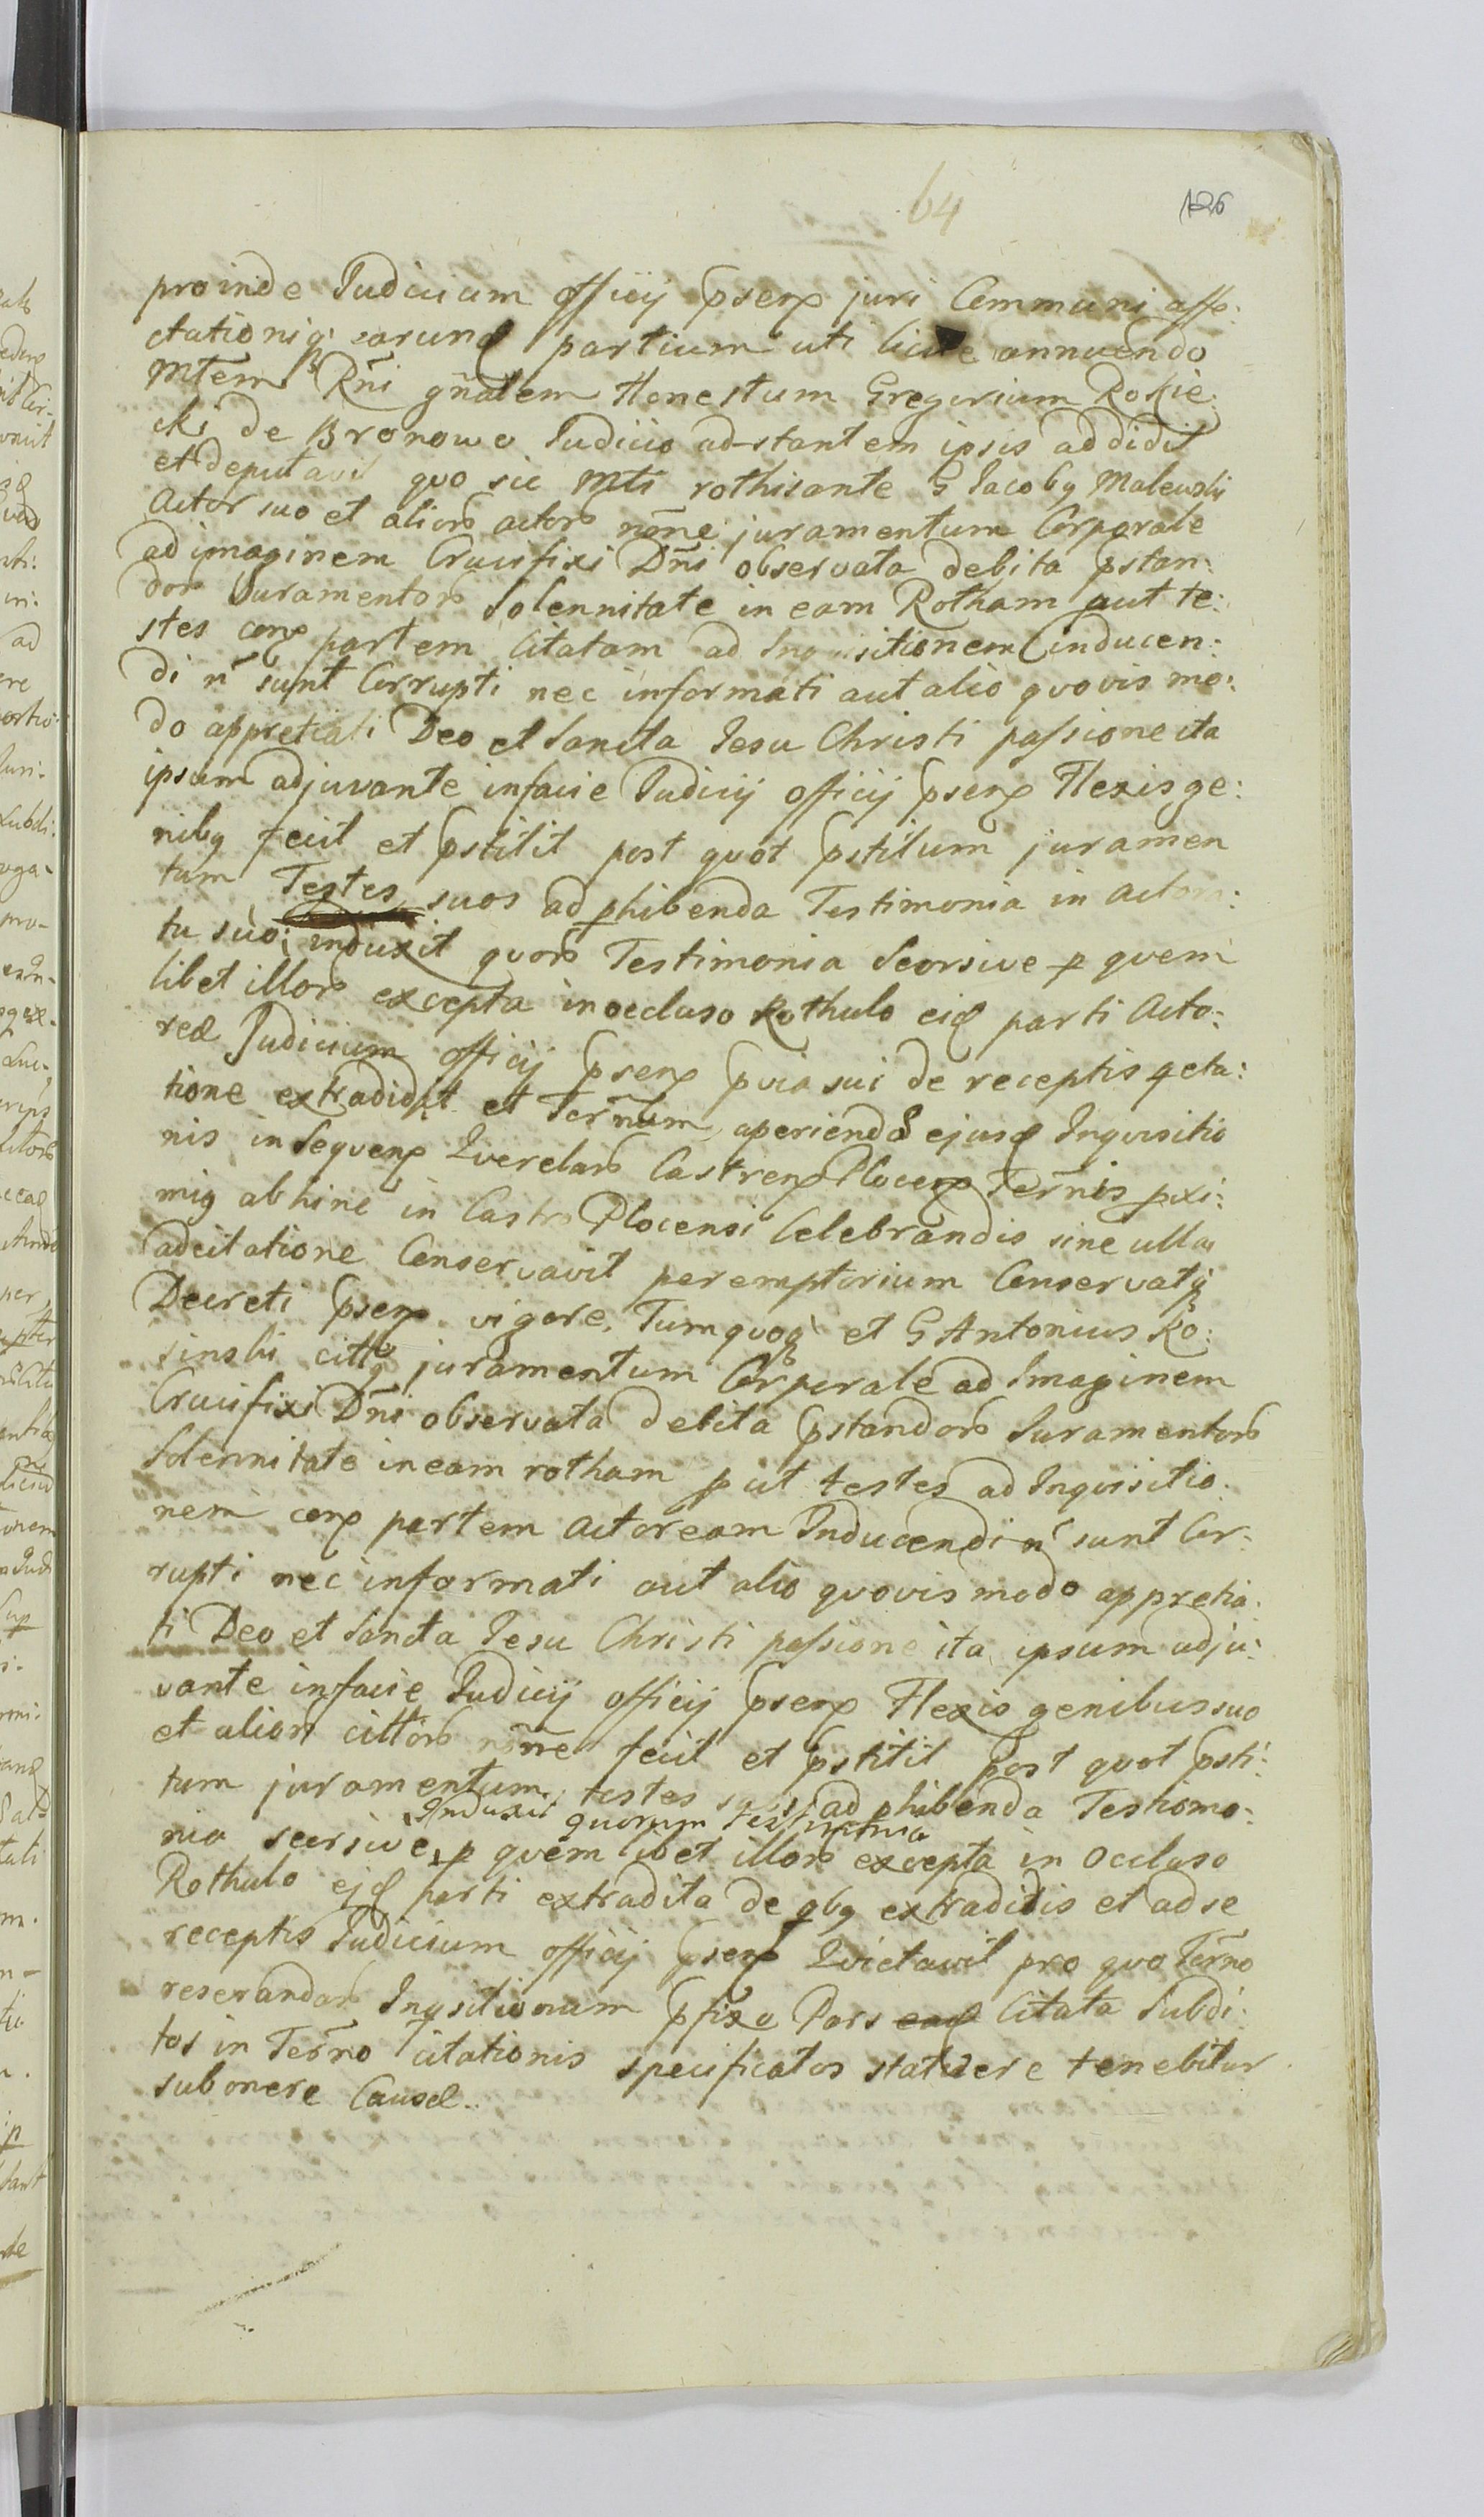 64
126
proinde Judicium officij pnsens juri Communi affe:
ctationiq; earund partium uti licite annuendo
Mtem Rni gnalem Honestum Gregorium Rokie:
cki de Bronowo Judicio ad-stantem ipsis addidit
et deputavit quo sic Mti rothisante G Jacobg Malewski
Actor suo et alior actor nõne juramentum Corporale
ad imaginem Crucifixi Dni observata debita pstan:
dor Juramentor Solennitate in eam Rotham put te:
stes con partem Citatam ad Inquisitionem inducen:
di n sunt Corrupti nec informati aut alio quovis mo:
do appretiati Deo et Sancta Jesu Christi passione ita
ipsum adjuvante infacie Judicij officij pnsens Flexis ge:
nibg fecit et pstitit post quot pstitum juramen
tum Testes suos ad phibenda Testimonia in Actora:
tu suo; induxit quor Testimonia Seorsive p quem
libet illor excepta inoccluso Rothulo eid parti Acto:
reæ Judicium officij pnsens pvia sui de receptis qeta:
tione extradidit et Ternum aperiendæ ejusd Inquisitio
nis in Sequens Querelar Castrens Plocens Ternis pxi:
mig abhinc in Castro Plocensi Celebrandis sine ulla
adcitatione Conservavit peremptorium Conservatq
Decreti pnsens vigore, Tumquoq et G Antonius Ko:
sinski cittg juramentum Corporale ad Imaginem
Crucifixi Dni observata debita pstandor Juramentor
Solennitate in eam rotham put testes ad Inquisitio:
nem con partem Actoream Inducendi n sunt Cor:
rupti nec informati aut alio quovis modo appretia:
ti Deo et Sancta Jesu Christi passione ita ipsum adju:
vante infacie Judicij officij pnsens Flexis genibus suo
et alior cittor nõne fecit et pstitit Post quot psti:
tum juramentum testes suos ad phibenda Testimo:
Induxit quorum testimonia
nia seorsive p quem libet illor excepta in Occluso
Rothulo ejd parti extradita de qbg extraditis et ad se
receptis Judicium officij pnsens Quietavit pro quo Terno
reserandar Inqsitionum pfixo Pars ead Citata Subdi:
tos in Terno citationis specificatos statuere tenebitur
sub onere Causæ.